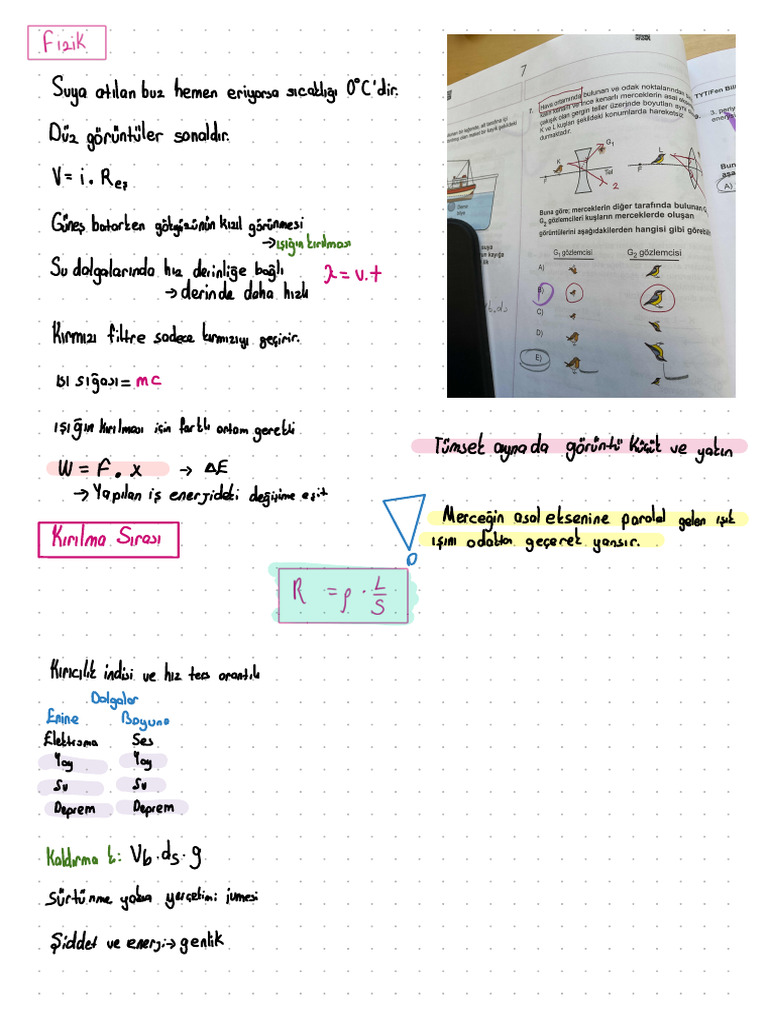 Fizik
Suya atılan buz hemen eriyorsa sıcaklığı 0°C'dir.
Düz görüntüler sanaldır.
V = i . Reş
Güneş batarken gökyüzünün kızıl görünmesi
→ ışığın kırılması
Su dalgalarında hız derinliğe bağlı
→ derinde daha hızlı
λ = v.t
Kırmızı filtre sadece kırmızıyı geçirir.
ısı sığası = mc
ışığın kırılması için farklı ortam gerekli
W = F . x → ΔE
→ Yapılan iş enerjideki değişime eşit
Kırılma Sırası
R = ρ . L/S
Kırıcılık indisi ve hız ters orantılı
Dalgalar
Enine Boyuna
Elektroma Ses
Yay Yay
Su Su
Deprem Deprem
Kaldırma k: Vb.ds.g
sürtünme yoksa yerçekimi ivmesi
Şiddet ve enerji → genlik
7
TYT/Fen Bili
1. Hava ortamında bulunan ve odak noktalarından
kalın kenarlı ve ince kenarlı merceklerin asal eksen
çakışık olan gergin teller üzerinde boyutları aynı
K ve L kuşları şekildeki konumlarda hareketsiz
durmaktadır.
K
G₁
L
F
Tel
F
2
Buna göre; merceklerin diğer tarafında bulunan G
G₂ gözlemcileri kuşların merceklerde oluşan
görüntülerini aşağıdakilerden hangisi gibi görebilir
G₁ gözlemcisi G₂ gözlemcisi
A)
B)
C)
D)
E)
3. peny
enerjis
Bun
aşa
A)
Tümsek aynada görüntü küçük ve yakın
Merceğin asal eksenine paralel gelen ışık
ışını odaktan geçerek yansır.